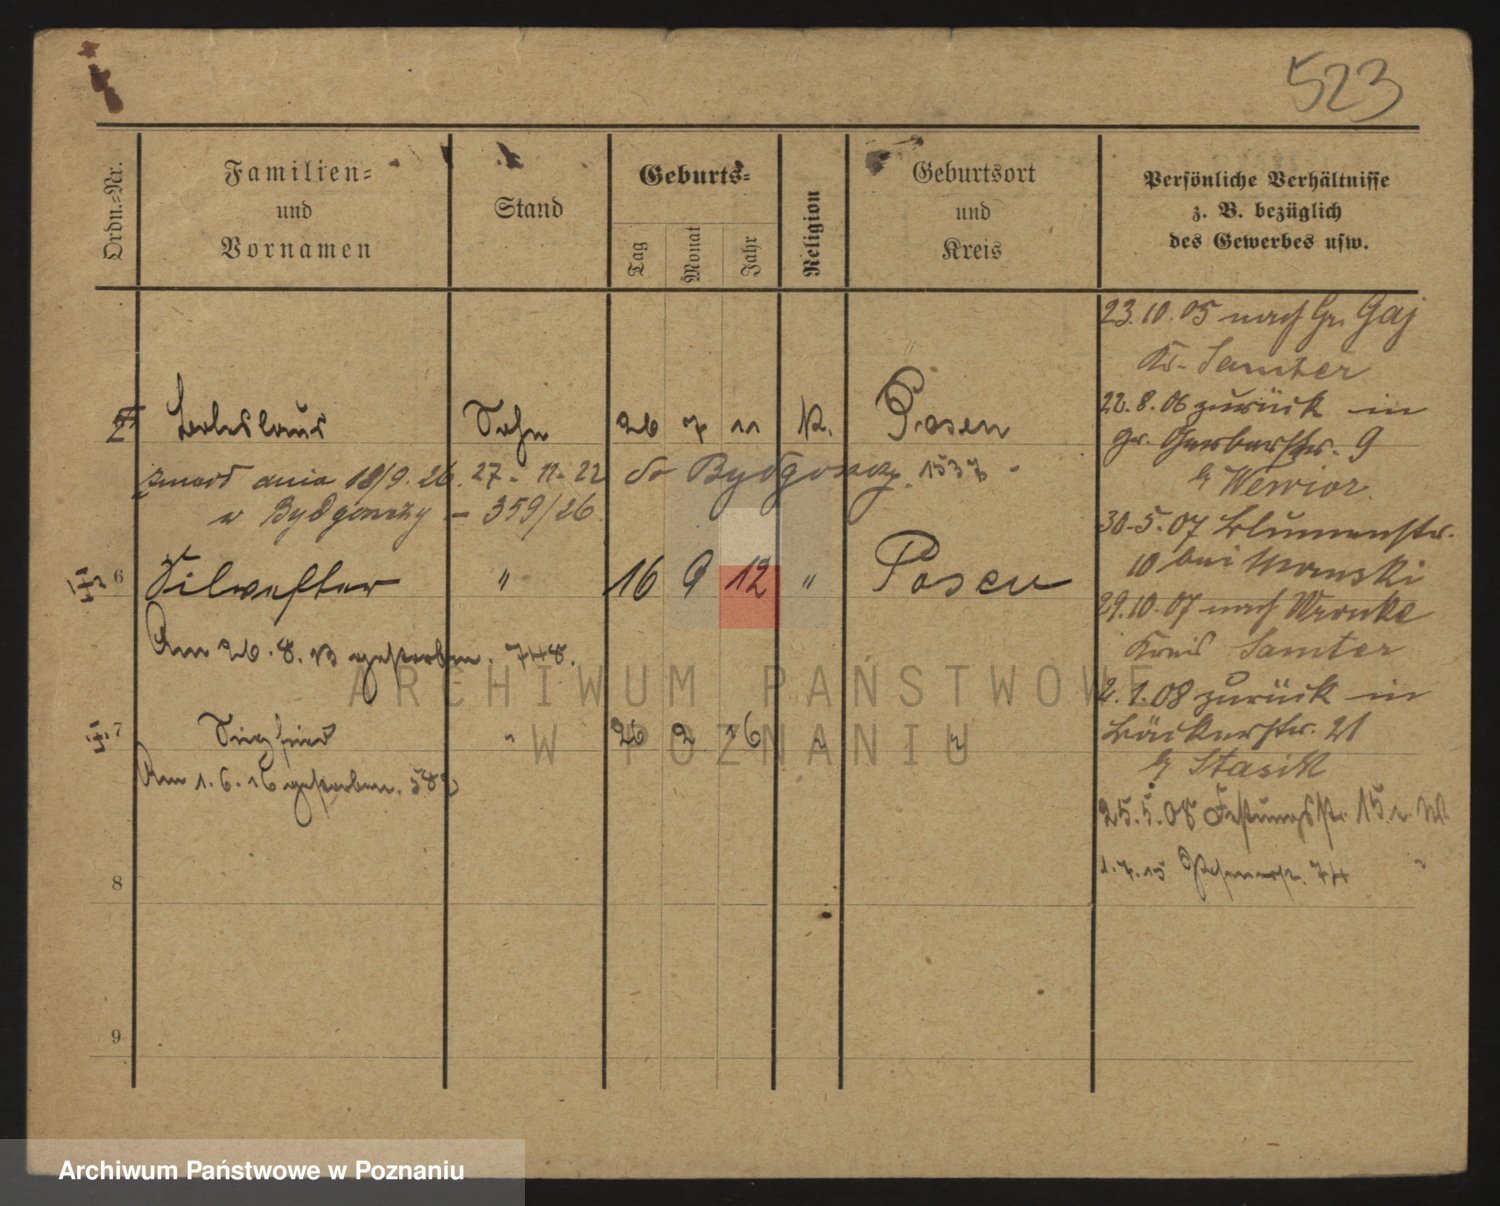 523
Ordn.=Nr.
Familien=
und
Vornamen
Stand
Geburts=
Tag
Monat
Jahr
Religion
Geburtsort
und
Kreis
Persönliche Verhältnisse
z. B. bezüglich
des Gewerbes usw.
Boleslaus Sohn 26 7 11 K. Posen
zmarł dnia 18/9. 26. 27-11-22 do Bydgoszczy. 1537
w Bydgoszczy - 359/26.
6 Silwester " 16 9 12 " Posen
Am 26. 8. 13 gestorben. 748.
7 Siegfried " 26 2 16 " "
Am 1. 6. 16 gestorben. 582
8
9
23.10.05 nach Gr. Gaj
Kr. Samter
22.8.06 zurück in
Gr. Gerberstr. 9
b/ Wewior.
30.5.07 Blumenstr.
10 bei
29.10.07 nach Wronke
Kreis Samter
2.1.08 zurück in
Bäckerstr. 21
b/ Stasik
25.5.08 Festungsstr. 15 r. W.
1.7.15 74 "
ARCHIWUM PAŃSTWOWE
W POZNANIU
Archiwum Państwowe w Poznaniu